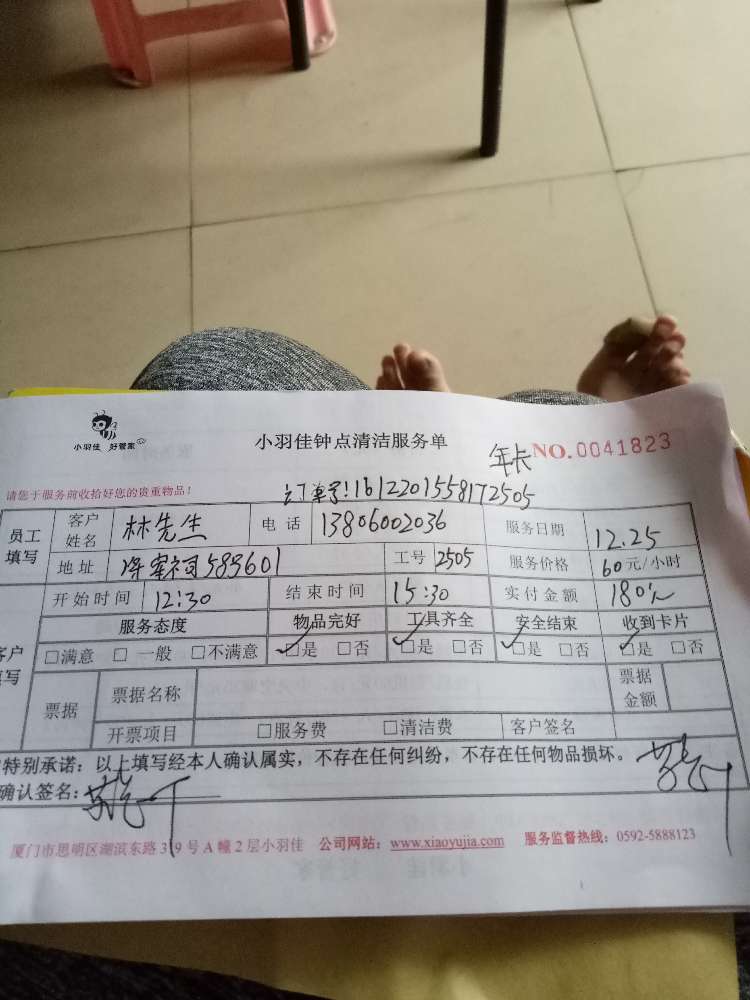 小羽佳 好管家
小羽佳钟点清洁服务单
年卡 NO.0041823
请您于服务前收拾好您的贵重物品！
订单号:1612201558172505
员工填写 客户姓名 林先生 电话 13806002036 服务日期 12.25
地址 583601 工号 2505 服务价格 60元/小时
开始时间 12:30 结束时间 15:30 实付金额 180元
客户填写 服务态度 物品完好 工具齐全 安全结束 收到卡片
□满意 □一般 □不满意 ☑是 □否 ☑是 □否 ☑是 □否 ☑是 □否
票据 票据名称 票据金额
开票项目 □服务费 □清洁费 客户签名
特别承诺：以上填写经本人确认属实，不存在任何纠纷，不存在任何物品损坏。
确认签名：
厦门市思明区湖滨东路319号A幢2层小羽佳 公司网站：www.xiaoyujia.com 服务监督热线：0592-5888123